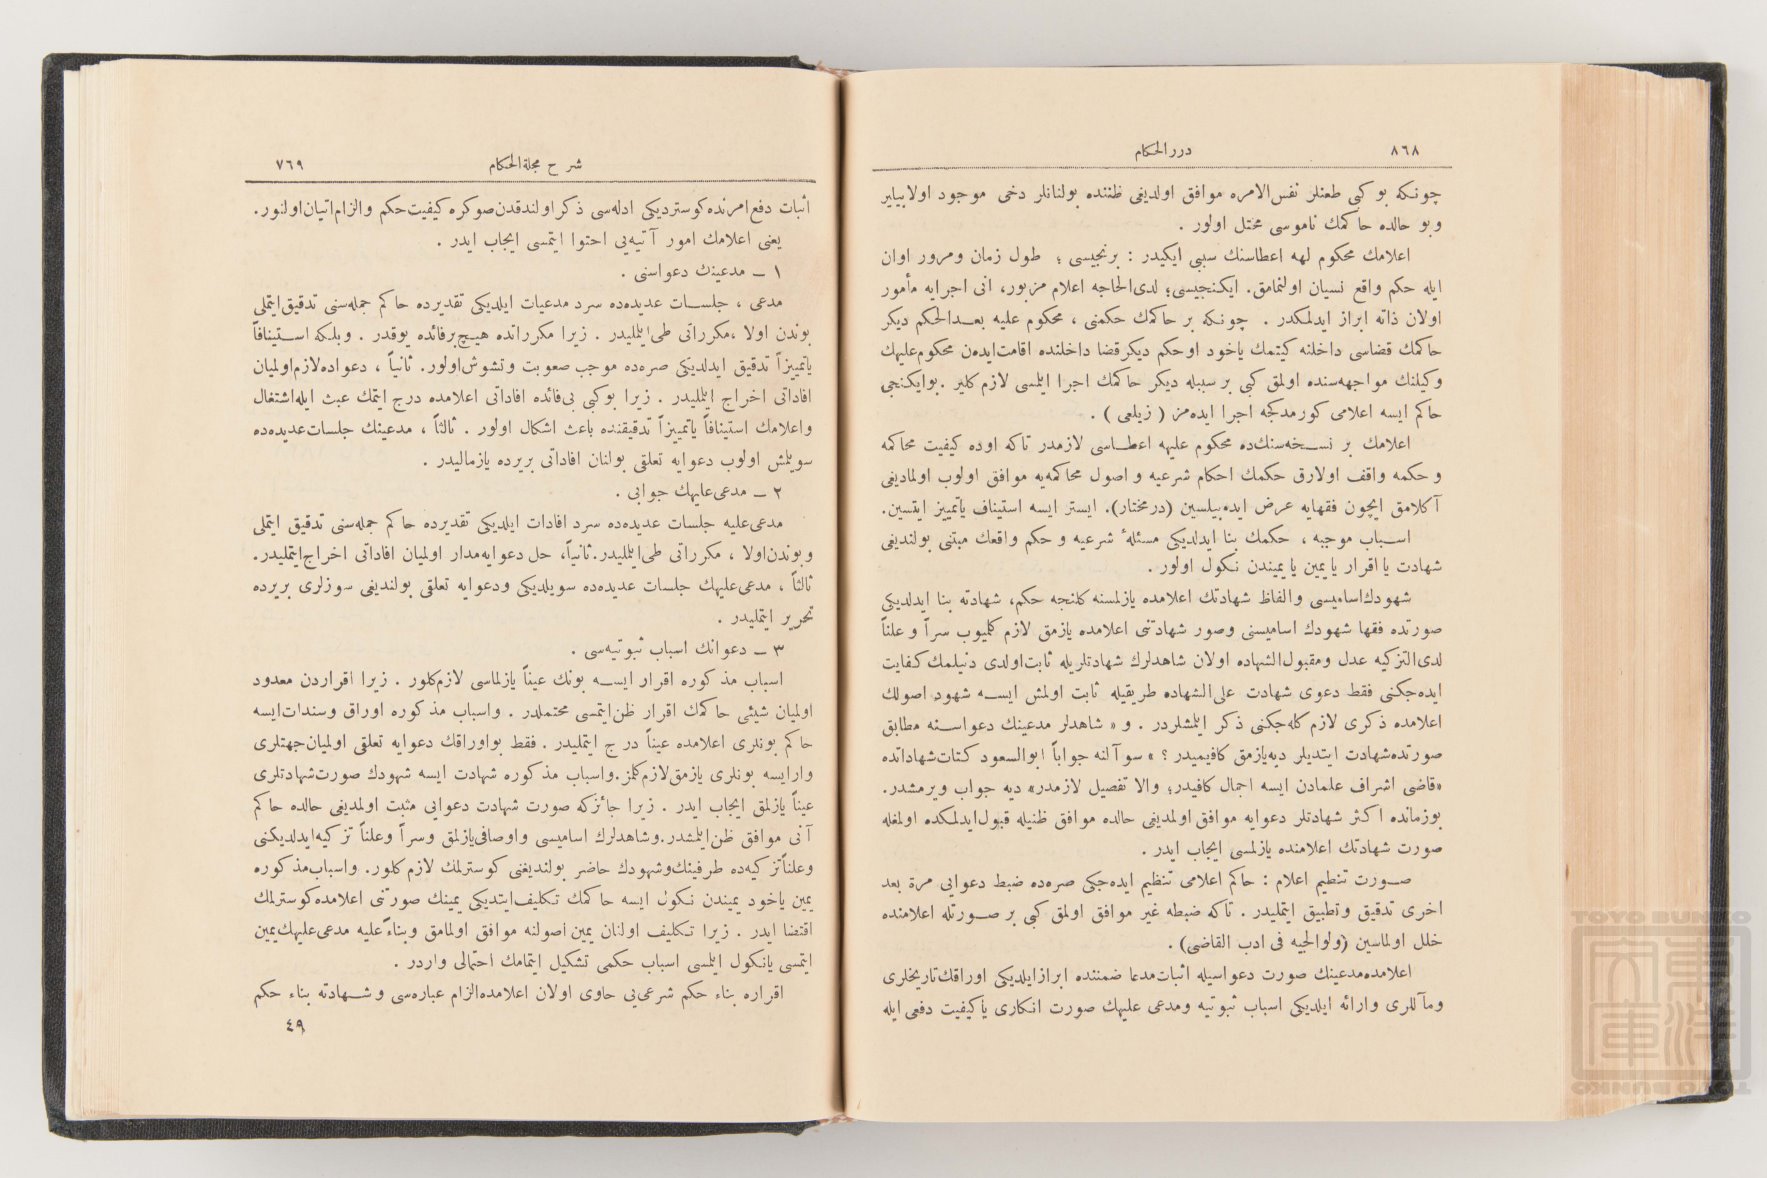 ٨٦٨
درر الحكام
چونكه بو كبى طعنلر نفس الامره موافق اولديغى ظننده بولنانلر دخى موجود اولابيلير
وبو حالده حاكمك ناموسى مختل اولور .
اعلامك محكوم لهه اعطاسنك سببى ايكيدر : برنجيسى ؛ طول زمان ومرور اوان
ايله حكم واقع نسيان اولنمامق. ايكنجيسى؛ لدى الحاجه اعلام مزبور، انى اجرايه مأمور
اولان ذاته ابراز ايدلمكدر . چونكه بر حاكمك حكمنى ، محكوم عليه بعدالحكم ديكر
حاكمك قضاسى داخلنه كيتمك ياخود او حكم ديكر قضا داخلنده اقامت ايدەن محكوم عليهك
وكيلنك مواجهه سنده اولمق كبى بر سببله ديكر حاكمك اجرا ايلمسى لازم كلير . بو ايكنجى
حاكم ايسه اعلامى كورمدكجه اجرا ايدەمز ( زيلعى ) .
اعلامك بر نسخه سنك ده محكوم عليهه اعطاسى لازمدر تاكه اوده كيفيت محاكمه
و حكمه واقف اولارق حكمك احكام شرعيه و اصول محاكمه يه موافق اولوب اولماديغى
آكلامق ايچون فقهايه عرض ايدەبيلسين (در مختار). ايستر ايسه استيناف ياتمييز ايتسين.
اسباب موجبه ، حكمك بنا ايدلديكى مسئلهٔ شرعيه و حكم واقعك مبتنى بولنديغى
شهادت يا اقرار يا يمين يا يميندن نكول اولور .
شهودك اساميسى والفاظ شهادتك اعلامده يازلمسنه كلنجه حكم، شهادته بنا ايدلديكى
صورتده فقها شهودك اساميسنى وصور شهادتنى اعلامده يازمق لازم كلميوب سراً و علناً
لدى التزكيه عدل ومقبول الشهاده اولان شاهدلرك شهادتلريله ثابت اولدى دنيلمك كفايت
ايده جكنى فقط دعوى شهادت على الشهاده طريقيله ثابت اولمش ايسه شهود اصولك
اعلامده ذكرى لازم كله جكنى ذكر ايلمشلردر . و « شاهدلر مدعينك دعواسنه مطابق
صورتده شهادت ايتديلر ديه يازمق كافيميدر ؟ » سوآلنه جواباً ابوالسعود كتات شهاداتده
«قاضى اشراف علمادن ايسه اجمال كافيدر؛ والا تفصيل لازمدر» ديه جواب ويرمشدر.
بو زمانده اكثر شهادتلر دعوايه موافق اولمديغى حالده موافق ظنيله قبول ايدلمكده اولمغله
صورت شهادتك اعلامنده يازلمسى ايجاب ايدر .
صورت تنظيم اعلام : حاكم اعلامى تنظيم ايده جكى صره ده ضبط دعوايى مرة بعد
اخرى تدقيق وتطبيق ايتمليدر . تاكه ضبطه غير موافق اولمق كبى بر صورتله اعلامنده
خلل اولماسين (ولوالجيه فى ادب القاضى) .
اعلامده مدعينك صورت دعواسيله اثبات مدعا ضمننده ابراز ايلديكى اوراقك تاريخلرى
ومآللرى وارائه ايلديكى اسباب ثبوتيه ومدعى عليهك صورت انكارى ياكيفيت دفعى ايله
شرح مجلة الحكام
٧٦٩
اثبات دفع امرنده كوسترديكى ادله سى ذكر اولندقدن صوكره كيفيت حكم والزام اتيان اولنور.
يعنى اعلامك امور آتيه يى احتوا ايتمسى ايجاب ايدر .
١ ــ مدعينك دعواسنى .
مدعى ، جلسات عديده ده سرد مدعيات ايلديكى تقديرده حاكم جمله سنى تدقيق ايتملى
بوندن اولا ، مكرراتى طى ايلمليدر . زيرا مكرراتده هيچ برفائده يوقدر . وبلكه استينافاً
ياتمييزاً تدقيق ايدلديكى صره ده موجب صعوبت وتشوش اولور. ثانياً ، دعواده لازم اولميان
افاداتى اخراج ايلمليدر . زيرا بو كبى بى فائده افاداتى اعلامده درج ايتمك عبث ايله اشتغال
واعلامك استينافاً ياتمييزاً تدقيقنده باعث اشكال اولور . ثالثاً ، مدعينك جلسات عديده ده
سويلمش اولوب دعوايه تعلقى بولنان افاداتى بريرده يازماليدر .
٢ ــ مدعى عليهك جوابى .
مدعى عليه جلسات عديده ده سرد افادات ايلديكى تقديرده حاكم جمله سنى تدقيق ايتملى
وبوندن اولا ، مكرراتى طى ايلمليدر. ثانياً، حل دعوايه مدار اولميان افاداتى اخراج ايتمليدر.
ثالثاً ، مدعى عليهك جلسات عديده ده سويلديكى ودعوايه تعلقى بولنديغى سوزلرى بريرده
تحرير ايتمليدر .
٣ ــ دعوانك اسباب ثبوتيه سى .
اسباب مذكوره اقرار ايسه بونك عيناً يازلماسى لازم كلور . زيرا اقراردن معدود
اولميان شيئى حاكمك اقرار ظن ايتمسى محتملدر . واسباب مذكوره اوراق وسندات ايسه
حاكم بونلرى اعلامده عيناً درج ايتمليدر . فقط بو اوراقك دعوايه تعلقى اولميان جهتلرى
وار ايسه بونلرى يازمق لازم كلمز. واسباب مذكوره شهادت ايسه شهودك صورت شهادتلرى
عيناً يازلمق ايجاب ايدر . زيرا جائزكه صورت شهادت دعوايى مثبت اولمديغى حالده حاكم
آنى موافق ظن ايلمشدر. وشاهدلرك اساميسى واوصافى يازلمق وسراً وعلناً تزكيه ايدلديكنى
وعلناً تزكيه ده طرفينك وشهودك حاضر بولنديغنى كوسترلمك لازم كلور. واسباب مذكوره
يمين ياخود يميندن نكول ايسه حاكمك تكليف ايتديكى يمينك صورتنى اعلامده كوسترلمك
اقتضا ايدر . زيرا تكليف اولنان يمين اصولنه موافق اولمامق وبناءً عليه مدعى عليهك يمين
ايتمسى يانكول ايلمسى اسباب حكمى تشكيل ايتمامك احتمالى واردر .
اقراره بناء حكم شرعى يى حاوى اولان اعلامده الزام عباره سى وشهادته بناء حكم
٤٩
TOYO BUNKO
東洋文庫
TOYO BUNKO